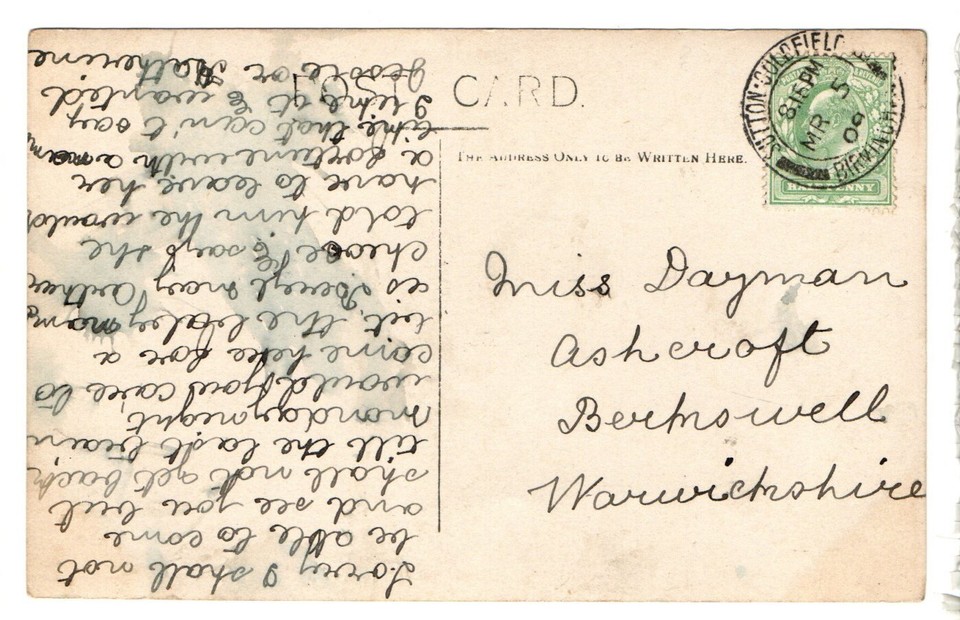 CARD.
THE ADDRESS ONLY TO BE WRITTEN HERE.
SUTTON-COLDFIELD
8.15PM
MR 5
09
BIRMINGHAM
HALFPENNY
Miss Dayman
Ashcroft
Berkswell
Warwickshire
Sorry I shall not
be able to come
and see you but
shall not get back
till the last train
monday night,
would you care to
come here for a
bit, the baby name
is Beryl may Arthur
chose says she
told him she would
have to leave her
a fortune with a name
like that can't say
I like it & wanted
Jessie or Katherine